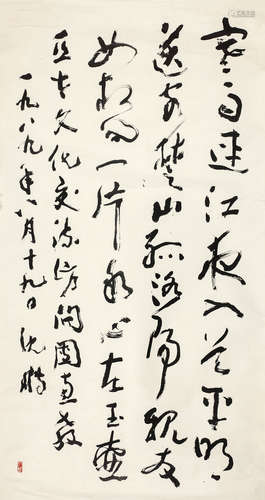 寒雨连江夜入吴平明
送客楚山孤洛阳亲友
如相问一片冰心在玉壶
文化交流访问团惠教
一九八九年八月十九日沈鹏